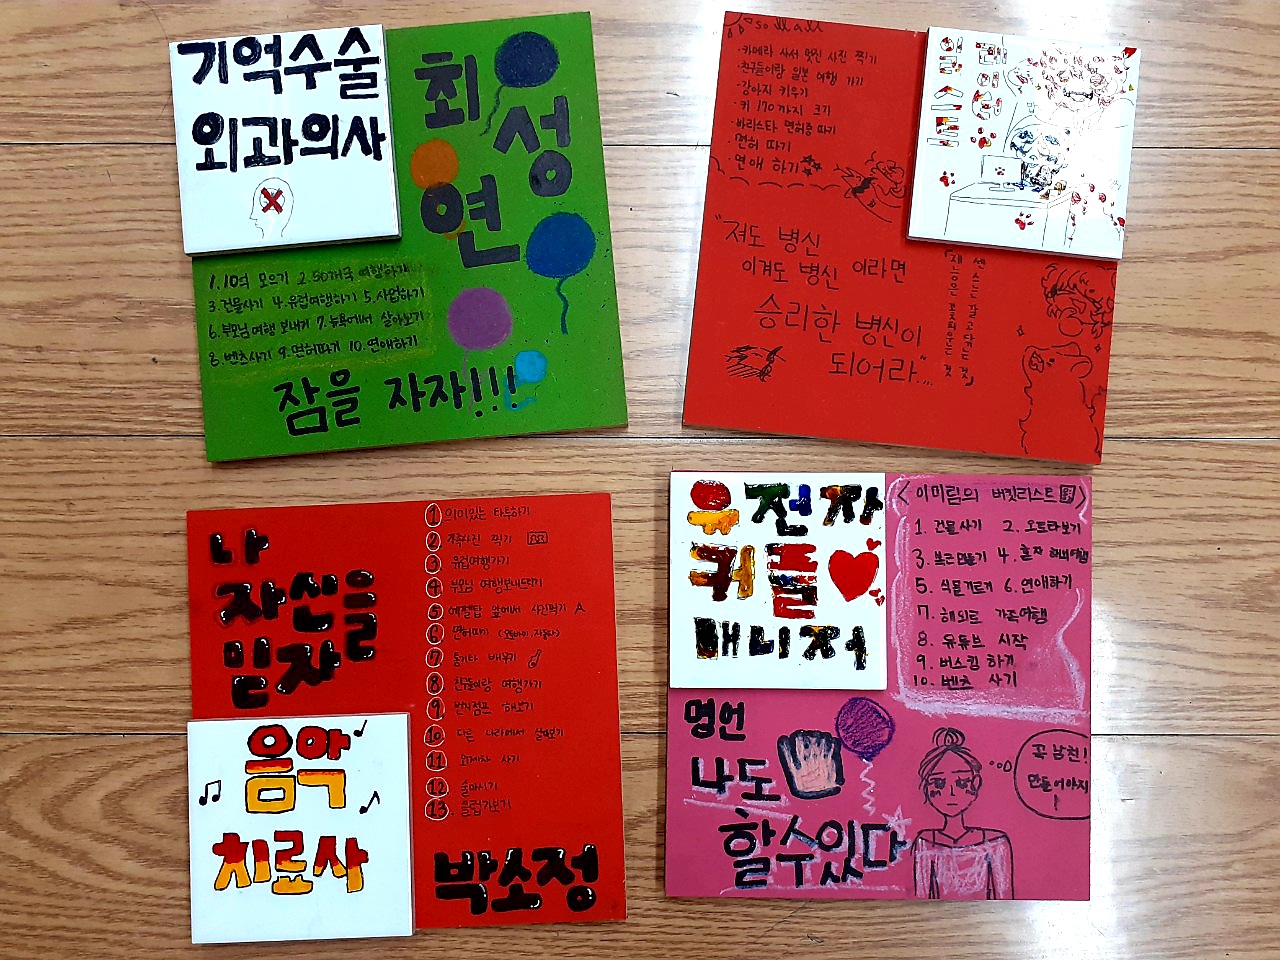 기억수술
외과의사
최
성
연
1. 10억 모으기 2. 50개국 여행하기
3. 건물사기 4. 유럽여행하기 5. 사업하기
6. 부모님여행 보내기 7. 뉴욕에서 살아보기
8. 벤츠사기 9. 면허따기 10. 연애하기
잠을 자자!!!
· 카메라 사서 멋진 사진 찍기
· 친구들이랑 일본 여행 가기
· 강아지 키우기
· 키 170까지 크기
· 바리스타 면허증 따기
· 면허 따기
· 연애 하기
"져도 병신
이겨도 병신 이라면
승리한 병신이
되어라..."
센스는 갈고 닦는 것
재능은 꽃피우는 것
나
자신을
믿자
음악
치료사
1 의미있는 타투하기
2. 가족사진 찍기
3 유럽여행가기
4 부모님 여행보내드리기
5 에펠탑 앞에서 사진찍기
6 면허따기 (오토바이, 자동차)
7 통기타 배우기
8 친구들이랑 여행가기
9 번지점프 해보기
10 다른 나라에서 살아보기
11 외제차 사기
12 술마시기
13. 클럽가보기
박소정
유전자
커플
매니저
<이미림의 버킷리스트>
1. 건물사기 2. 오로라보기
3. 4. 혼자 해외여행
5. 식물기르기 6. 연애하기
7. 해외로 가족여행
8. 유튜브 시작
9. 버스킹 하기
10. 벤츠 사기
명언
나도
할수있다
꼭 남친!
만들어야지
!